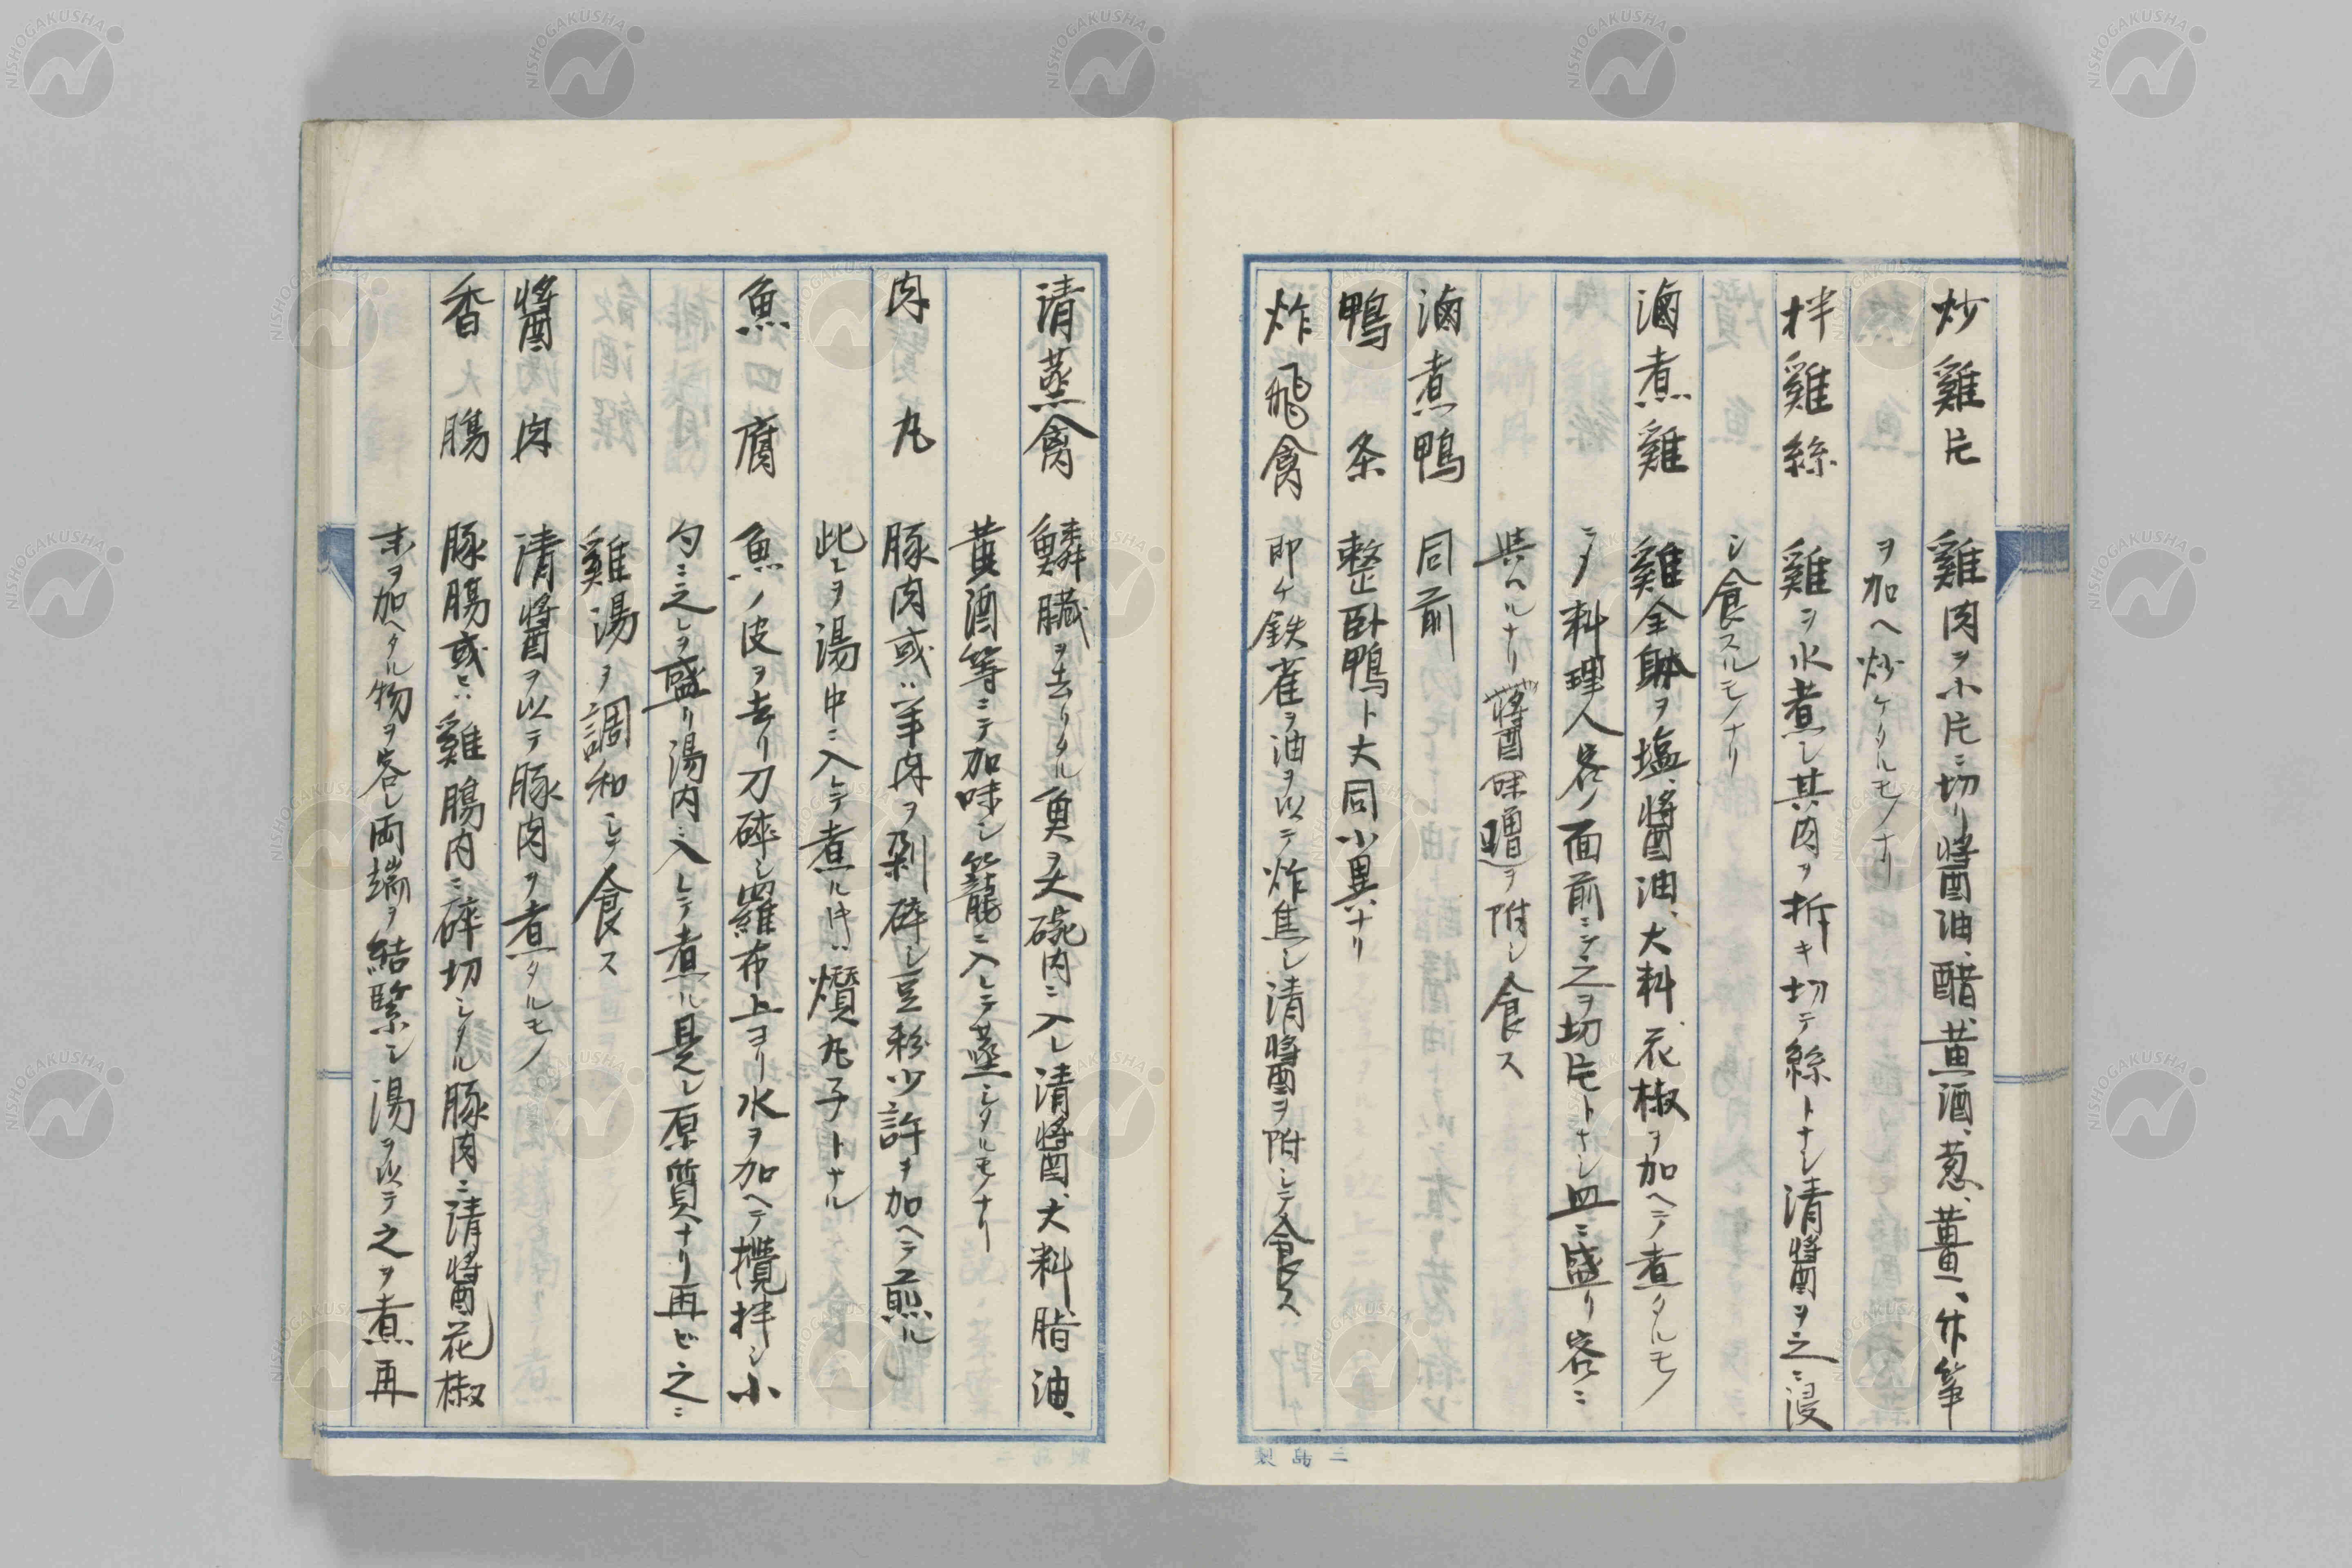 炒雞片 雞肉ヲ小片ニ切リ醬油、醋、黄酒、葱、薑、竹筍
ヲ加ヘ炒ケタルモノナリ
拌雞絲 雞ヲ水煮シ其肉ヲ拆キ切テ絲トナシ清醬ヲ之ニ浸
シ食スルモノナリ
滷煮雞 雞全躰ヲ塩、醬油、大料、花椒ヲ加ヘテ煮タルモノ
ニテ料理人客ノ面前ニテ之ヲ切片トナシ皿ニ盛リ客ニ
供ヘルナリ醬味噌ヲ附シ食ス
滷煮鴨 同前
鴨条 整臥鴨ト大同小異ナリ
炸飛禽 即ケ鉄雀ヲ油ヲ以テ炸焦シ清醬ヲ附シテ食ス
清蒸禽 鱗臓ヲ去リタル魚ヲ大碗内ニ入レ清醬、大料脂油、
黄酒等ニテ加味シ籠ニ入レテ蒸シタルモノナリ
肉丸 豚肉或ハ羊肉ヲ剁碎シ豆粉少許ヲ加ヘテ煎ル
此レヲ湯中ニ入レテ煮ル片ハ爕丸子トナル
魚腐 魚ノ皮ヲ去リ刀碎シ羅布上ヨリ水ヲ加ヘテ攪拌シ小
勺ニ之レヲ盛リ湯内ニ入レテ煮ル是レ原質ナリ再ビ之ニ
雞湯ヲ調和シテ食ス
醬肉 清醬ヲ以テ豚肉ヲ煮タルモノ
香腸 豚腸或ハ雞腸内ニ碎切シタル豚肉ニ清醬花椒
末ヲ加ヘタル物ヲ容レ両端ヲ結緊シ湯ヲ以テ之ヲ煮再
三島製
NISHOGAKUSHA